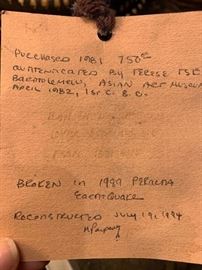 PURCHASED 1981 750
AUTHENTICATED BY TERESE TSE
BARTHOLOMEW, ASIAN ART MUSEUM
APRIL 1982, 1st C. B.C.
BROKEN IN 1989
EARTHQUAKE
RECONSTRUCTED JULY 19, 1994